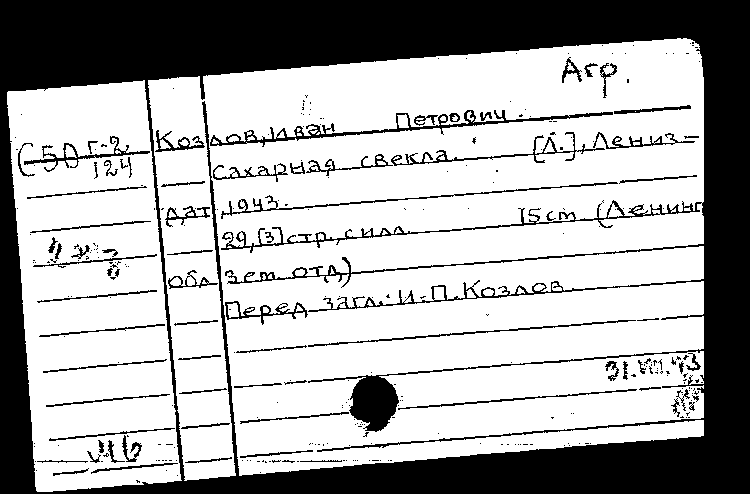 Агр.
Козлов, Иван Петрович.
Г-2
124
Сахарная свекла. [Л.], Лениз=
дат, 1943.
29, [3] стр., с илл. 15 cm (Ленинг
обл зем. отд)
Перед загл.: И. П. Козлов
31.VIII.43